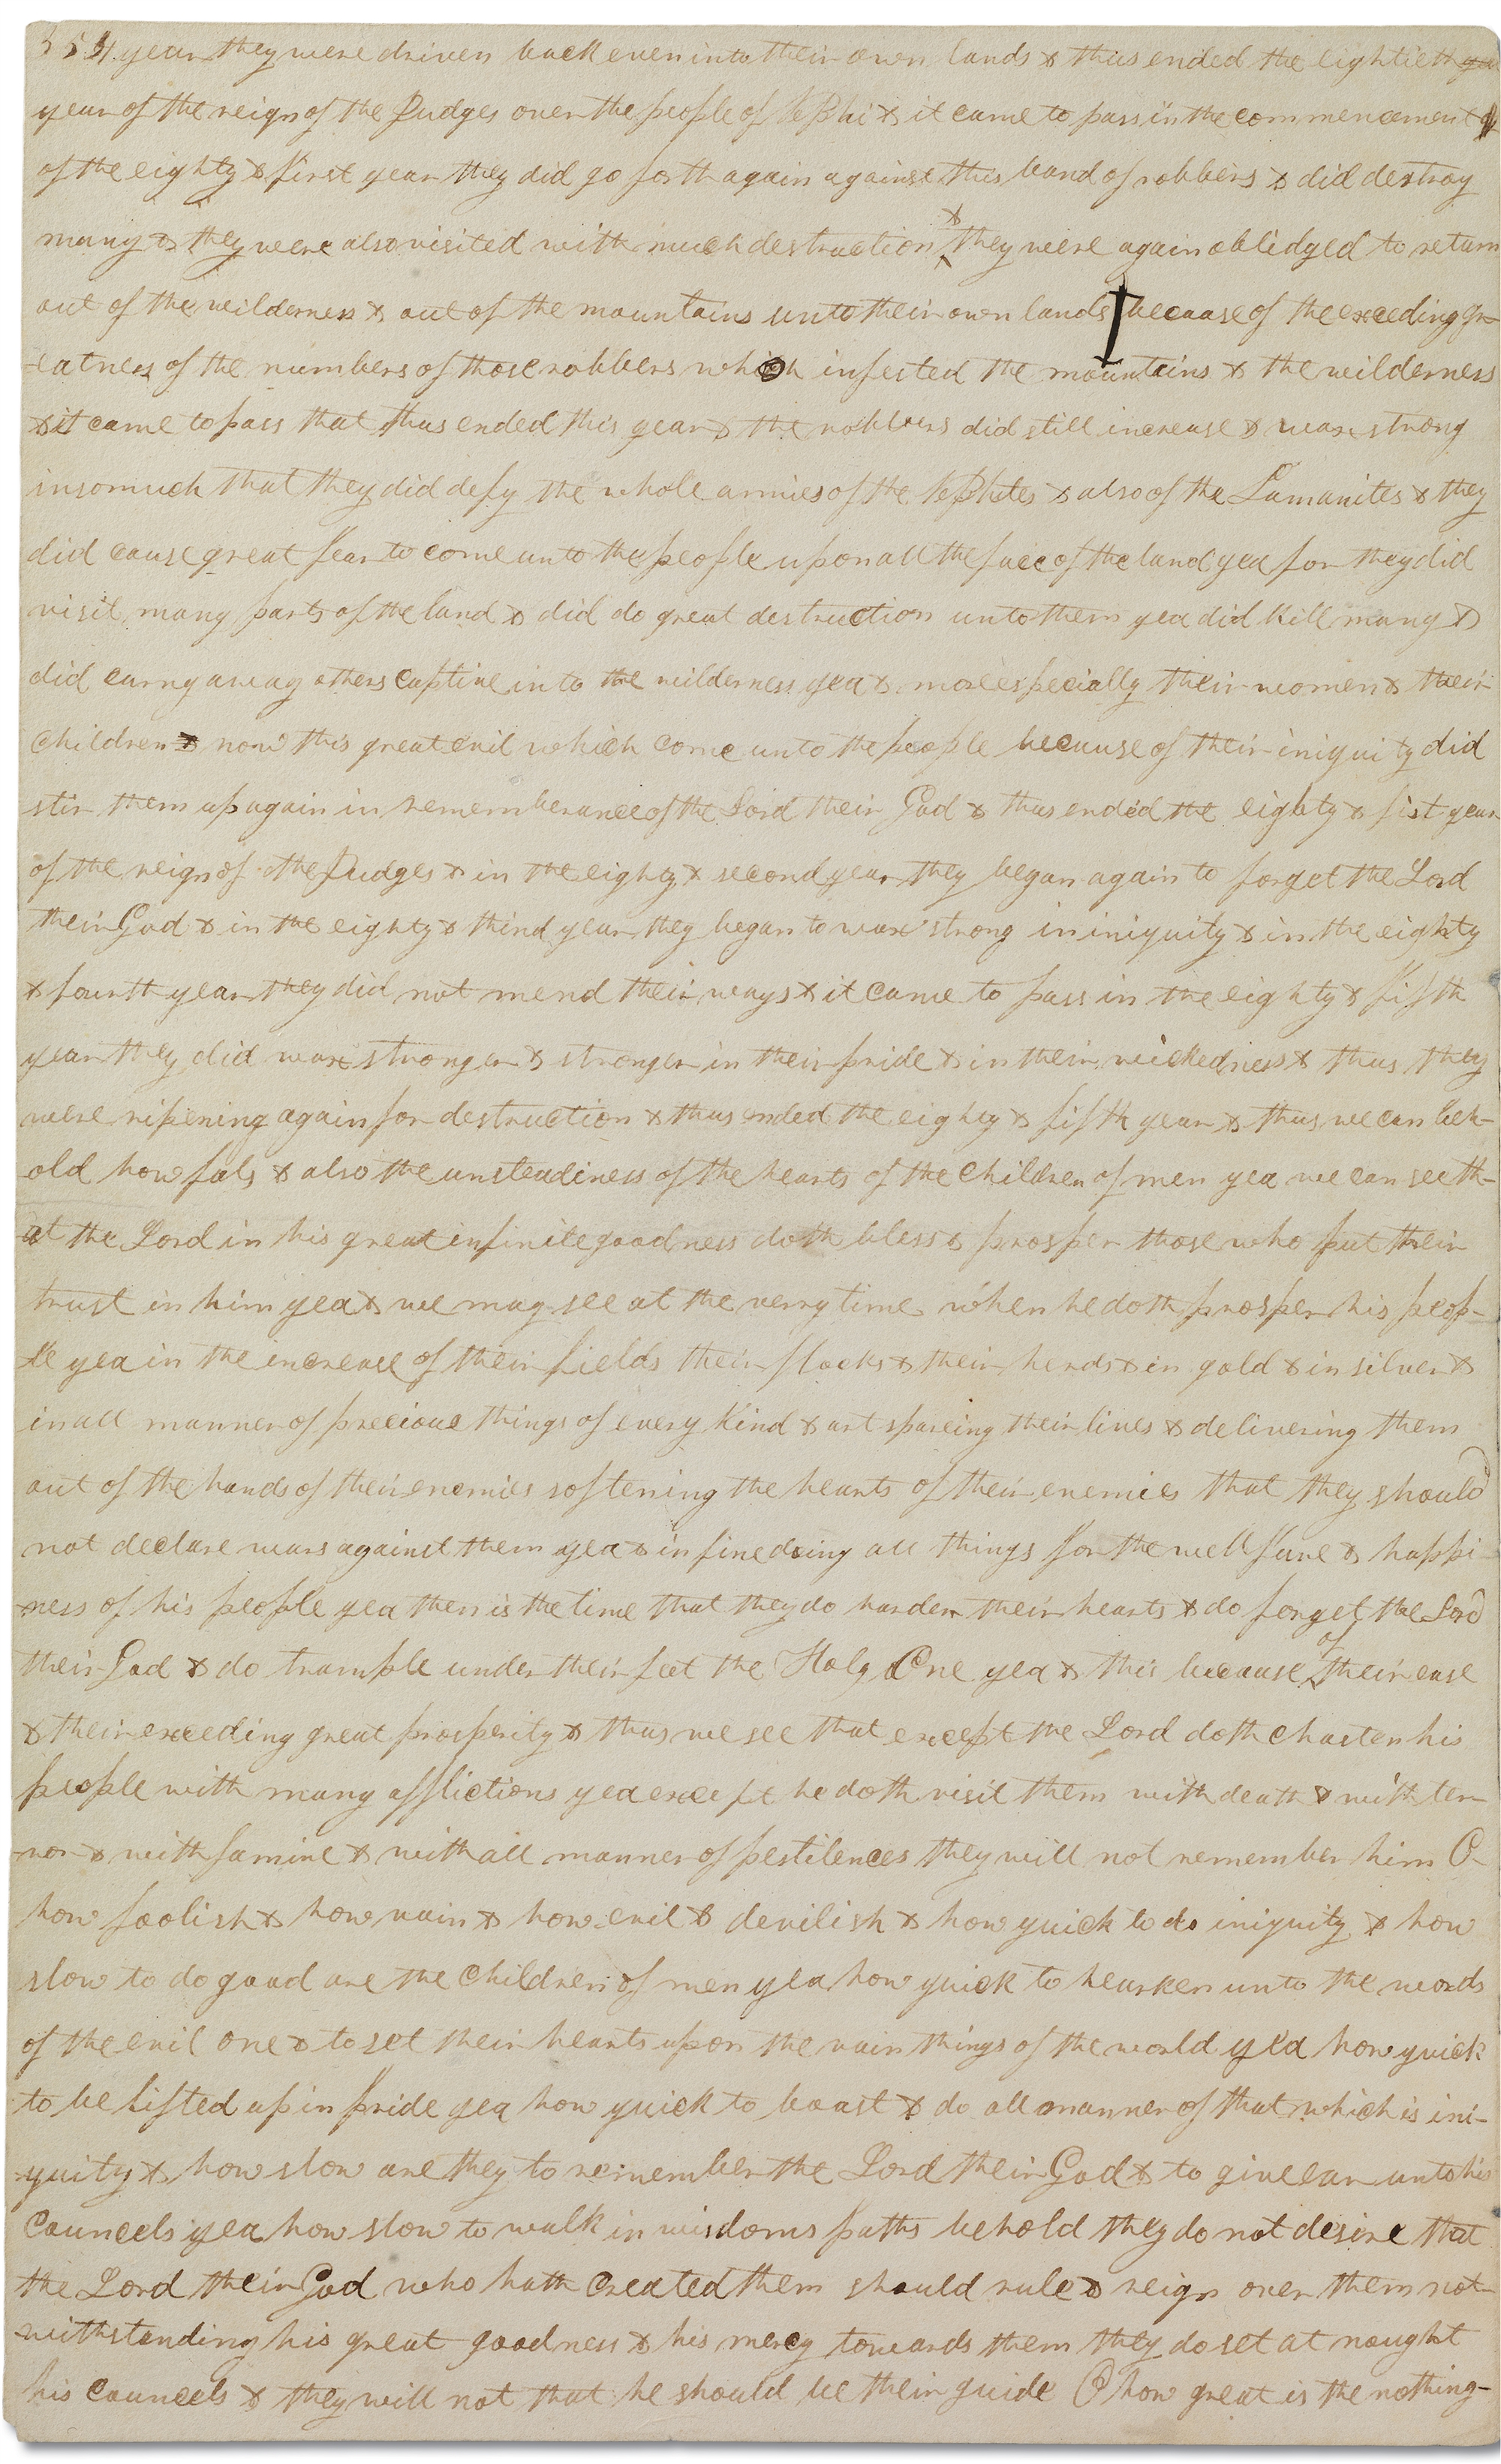 354. year they were driven back even into their own lands & thus ended the eightieth
year of the reign of the Judges over the people of Nephi & it came to pass in the commencement
of the eighty & first year they did go forth again against this band of robbers & did destroy
many & they were also visited with much destruction & they were again oblidged to return
out of the wilderness & out of the mountains unto their own lands because of the exceeding gr-
-eatness of the numbers of those robbers which infested the mountains & the wilderness
& it came to pass that thus ended this year & the robbers did still increase & wax strong
insomuch that they did defy the whole armies of the Nephites & also of the Lamanites & they
did cause great fear to come unto the people upon all the face of the land yea for they did
visit many parts of the land & did do great destruction unto them yea did kill many &
did carry away others captive into the wilderness yea & more especially their women & their
children & now this great evil which come unto the people because of their iniquity did
stir them up again in rememberance of the Lord their God & thus ended the eighty & fist year
of the reign of the Judges & in the eighty & second year they began again to forget the Lord
their God & in the eighty & third year they began to wax strong in iniquity & in the eighty
& fourth year they did not mend their ways & it came to pass in the eighty & fifth
year they did wax stronger & stronger in their pride & in their wickedness & thus they
were ripening again for destruction & thus ended the eighty & fifth year & thus we can beh-
-old how fals & also the unsteadiness of the hearts of the children of men yea we can see th-
-at the Lord in his great infinite goodness doth bless & prosper those who put their
trust in him yea & we may see at the verry time when he doth prosper his peop-
-le yea in the increase of their fields their flocks & their herds & in gold & in silver &
in all manner of precious things of every kind & art spareing their lives & delivering them
out of the hands of their enemies softening the hearts of their enemies that they should
not declare wars against them yea & in fine doing all things for the wellfare & happi-
-ness of his people yea then is the time that they do harden their hearts & do forget the Lord
their God & do trample under their feet the Holy One yea & this because of their ease
& their exceeding great prosperity & thus we see that except the Lord doth chasten his
people with many afflictions yea except he doth visit them with death & with ter-
-ror & with famine & with all manner of pestilences they will not remember him O
how foolish & how vain & how evil & devilish & how quick to do iniquity & how
slow to do good are the children of men yea how quick to hearken unto the words
of the evil one & to set their hearts upon the vain things of the world yea how quick
to be lifted up in pride yea how quick to boast & do all manner of that which is ini-
-quity & how slow are they to remember the Lord their God & to give ear unto his
councels yea how slow to walk in wisdoms paths behold they do not desire that
the Lord their God who hath created them should rule & reign over them not-
-withstanding his great goodness & his mercy towards them they do set at nought
his councels & they will not that he should be their guide O how great is the nothing-